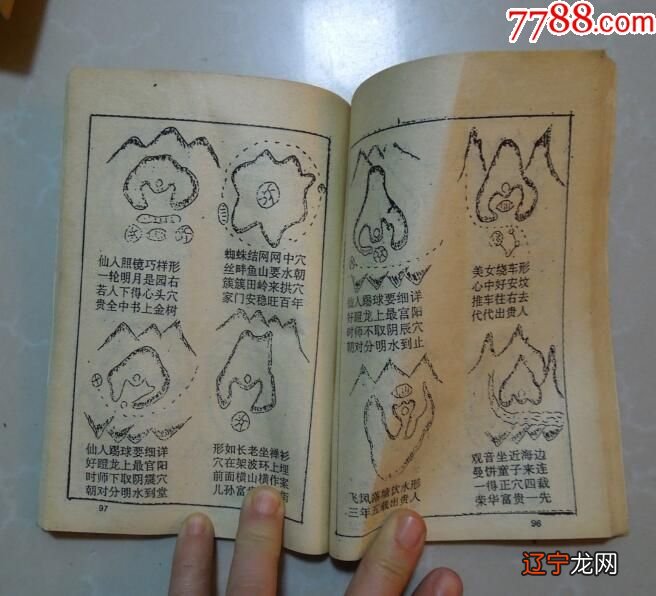 7788.com
仙人照镜巧样形
一轮明月是园右
若人下得心头穴
贵全中书上金树
蜘蛛结网网中穴
丝畔鱼山要水朝
簇簇田岭来拱穴
家门安稳旺百年
仙人踢球要细详
好蹬龙上最官阳
时师下取阴震穴
朝对分明水到堂
形如长老坐禅衫
穴在架波环上埋
前面横山横作案
儿孙富
97
仙人踢球要细详
好蹬龙上最官阳
时师不取阴辰穴
朝对分明水到止
美女绕车形
心中好安坟
推车往右去
代代出贵人
飞凤落塘饮水形
三年五载出贵人
观音坐近海边
曼饼童子来连
一得正穴四裁
荣华富贵一先
96
辽宁龙网